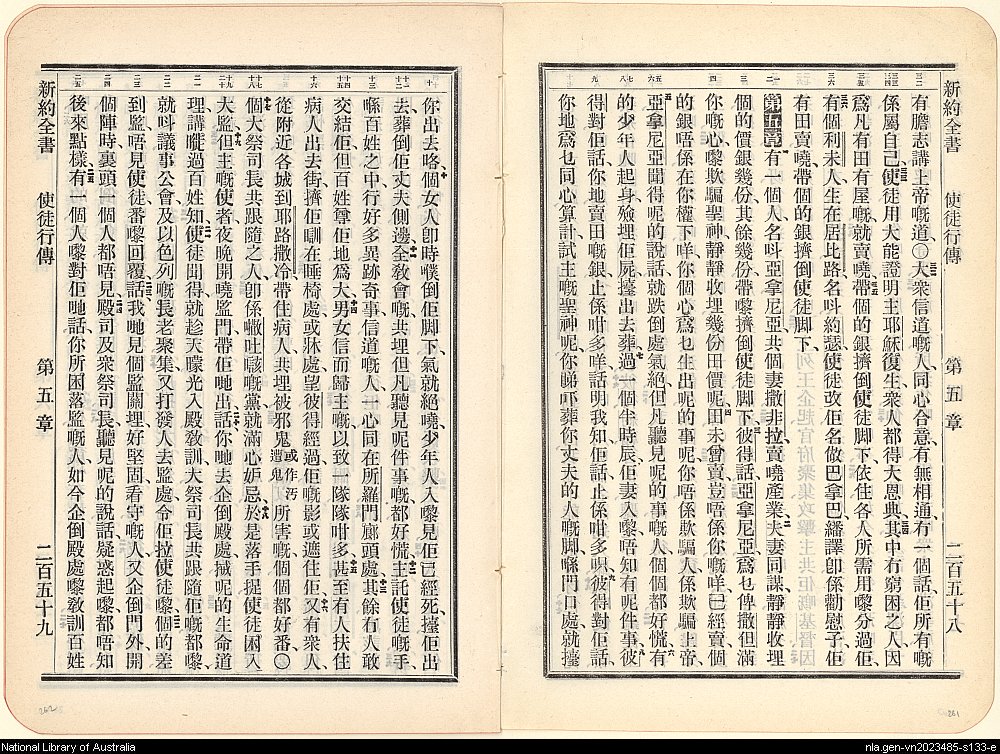 新約全書 使徒行傳 第五章 二百五十八
有膽志講上帝嘅道○大衆信道嘅人同心合意有無相通有一個話佢所有嘅
係屬自己使徒用大能證明主耶穌復生衆人都得大恩典其中冇窮困之人因
爲凡有田有屋嘅就賣曉帶個的銀擠倒使徒脚下依住各人所需用嚟分過佢
有個利未人生在居比路名呌約瑟使徒改佢名做巴拿巴繙譯卽係勸慰子佢
有田賣曉帶個的銀擠倒使徒脚下
第五章有一個人名呌亞拿尼亞共個妻撒非拉賣曉產業夫妻同謀靜靜收埋
個的價銀幾份其餘幾份帶嚟擠倒使徒脚下彼得話亞拿尼亞爲乜俾撒但滿
你嘅心嚟欺騙聖神靜靜收埋幾份田價呢田未曾賣豈唔係你嘅咩已經賣個
的銀唔係在你權下咩你個心爲乜生出呢的事呢你唔係欺騙人係欺騙上帝
亞拿尼亞聞得呢的說話就跌倒處氣絕但凡聽見呢的事嘅人個個都好慌有
的少年人起身殮埋佢屍擡出去葬過一個半時辰佢妻入嚟唔知有呢件事彼
得對佢話你地賣田嘅銀止係咁多咩話明我知佢話止係咁多唄彼得對佢話
你地爲乜同心算計試主嘅聖神呢你睇吓葬你丈夫的人嘅脚喺門口處就擡
新約全書 使徒行傳 第五章 二百五十九
你出去咯個女人卽時噗倒佢脚下氣就絕曉少年人入嚟見佢已經死擡佢出
去葬倒佢丈夫側邊全教會嘅共埋但凡聽見呢件事嘅都好慌主託使徒嘅手
喺百姓之中行好多異跡奇事信道嘅人一心同在所羅門廊頭處其餘冇人敢
交結佢但百姓尊佢地爲大男女信而歸主嘅以致一隊隊咁多甚至有人扶住
病人出去街擠佢瞓在睡椅處或牀處望彼得經過佢嘅影或遮住佢又有衆人
從附近各城到耶路撒冷帶住病人共埋被邪鬼或作汚遭鬼所害嘅個個都好番○
個大祭司長共跟隨之人卽係㘔吐該嘅黨就滿心妬忌於是落手捉使徒困入
大監但主嘅使者夜晚開曉監門帶佢哋出話你哋去企倒殿處摵呢的生命道
理講㗾過百姓知使徒聞得就趁天矇光入殿敎訓大祭司長共跟隨佢嘅都嚟
就呌議事公會及以色列嘅長老聚集又打發人去監處令佢拉使徒嚟個的差
到監唔見使徒番嚟回覆話我哋見個監關埋好堅固看守嘅人又企倒門外開
個陣時裏頭一個人都唔見殿司及衆祭司長聽見呢的說話疑惑起嚟都唔知
後來點樣有一個人嚟對佢哋話你所困落監嘅人如今企倒殿處嚟敎訓百姓
National Library of Australia
nla.gen-vn2023485-s133-e